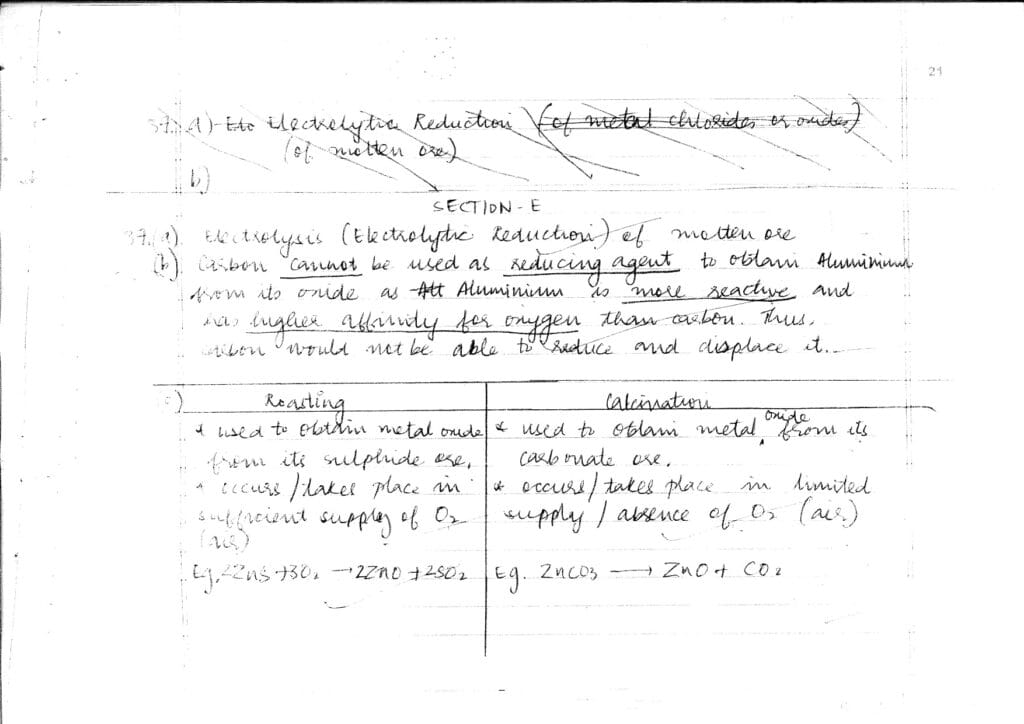 21
37. a) Ele Electrolytic Reduction (of metal chlorides or oxides)
(of molten ore)
b)
SECTION - E
37. (a) Electrolysis (Electrolytic Reduction) of molten ore
(b) Carbon cannot be used as reducing agent to obtain Aluminium
from its oxide as Alt Aluminium is more reactive and
has higher affinity for oxygen than carbon. Thus,
carbon would not be able to reduce and displace it.
c) Roasting Calcination
* used to obtain metal oxide from its sulphide ore.
* occurs / takes place in sufficient supply of O2 (air)
Eg. 2ZnS + 3O2 → 2ZnO + 2SO2
* used to obtain metal oxide from its
carbonate ore.
* occurs / takes place in limited
supply / absence of O2 (air)
Eg. ZnCO3 → ZnO + CO2